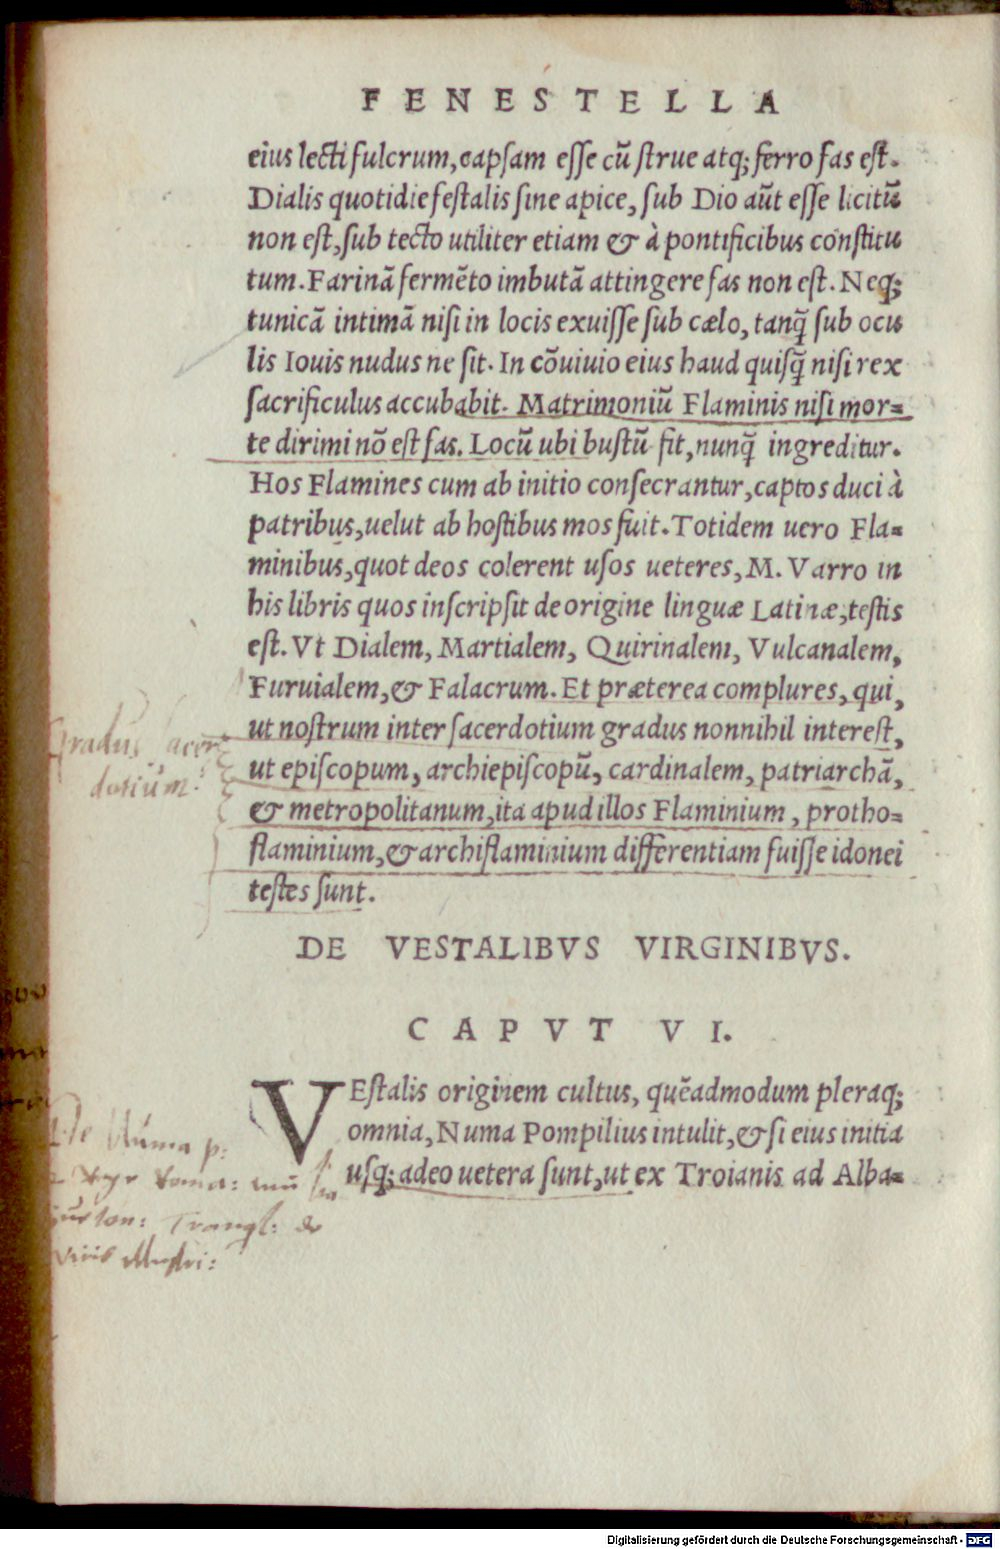 FENESTELLA
eius lecti fulcrum, capsam esse cũ strue atq; ferro fas est.
Dialis quotidie festalis sine apice, sub Dio aũt esse licitũ
non est, sub tecto utiliter etiam & à pontificibus constitu
tum. Farinã fermẽto imbutã attingere fas non est. Neq;
tunicã intimã nisi in locis exuisse sub cælo, tanq̃ sub ocu
lis Iouis nudus ne sit. In cõuiuio eius haud quisq̃ nisi rex
sacrificulus accubabit. Matrimoniũ Flaminis nisi mor=
te dirimi nõ est fas. Locũ ubi bustũ fit, nunq̃ ingreditur.
Hos Flamines cum ab initio consecrantur, captos duci à
patribus, uelut ab hostibus mos fuit. Totidem uero Fla=
minibus, quot deos colerent usos ueteres, M. Varro in
his libris quos inscripsit de origine linguæ Latinæ, testis
est. Vt Dialem, Martialem, Quirinalem, Vulcanalem,
Furuialem, & Falacrum. Et præterea complures, qui,
ut nostrum inter sacerdotium gradus nonnihil interest,
ut episcopum, archiepiscopũ, cardinalem, patriarchã,
& metropolitanum, ita apud illos Flaminium, protho=
flaminium, & archiflaminium differentiam fuisse idonei
testes sunt.
Gradus sacer
dotium.
DE VESTALIBVS VIRGINIBVS.
CAPVT VI.
VEstalis originem cultus, quẽadmodum pleraq;
omnia, Numa Pompilius intulit, & si eius initia
usq; adeo uetera sunt, ut ex Troianis ad Alba=
de Numa p:
Tranql: de
viris illustri:
Digitalisierung gefördert durch die Deutsche Forschungsgemeinschaft - DFG